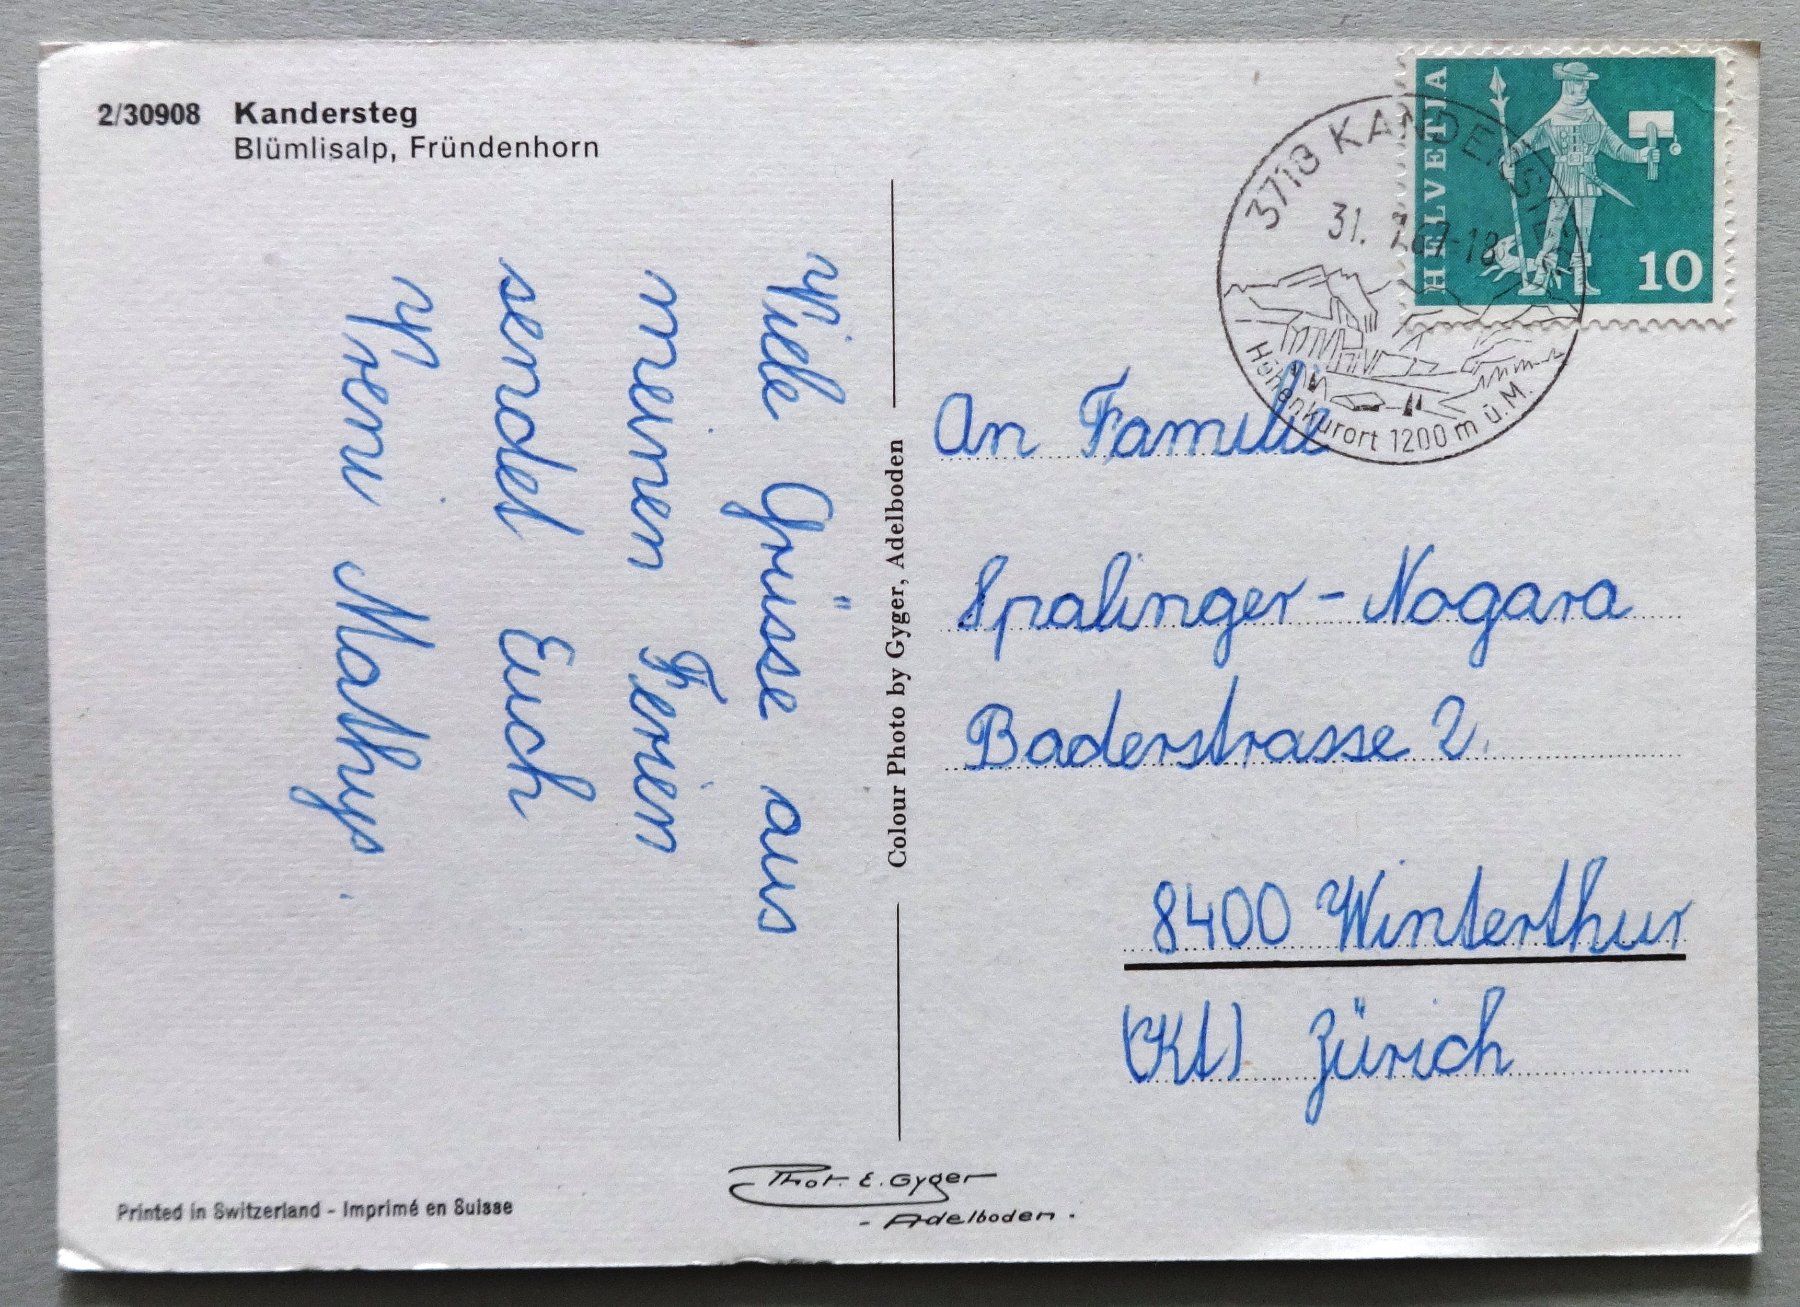 2/30908 Kandersteg
Blümlisalp, Fründenhorn
Viele Grüsse aus
meinen Ferien
sendet Euch
Vreni Mathys.
Colour Photo by Gyger, Adelboden
HELVETIA
10
3718 KANDERSTEG
31. 7.67-18
Höhenkurort 1200 m ü. M.
An Familie
Spalinger-Nogara
Baderstrasse 2.
8400 Winterthur
(Kt) Zürich
Printed in Switzerland - Imprimé en Suisse
Phot. E. Gyger
- Adelboden.